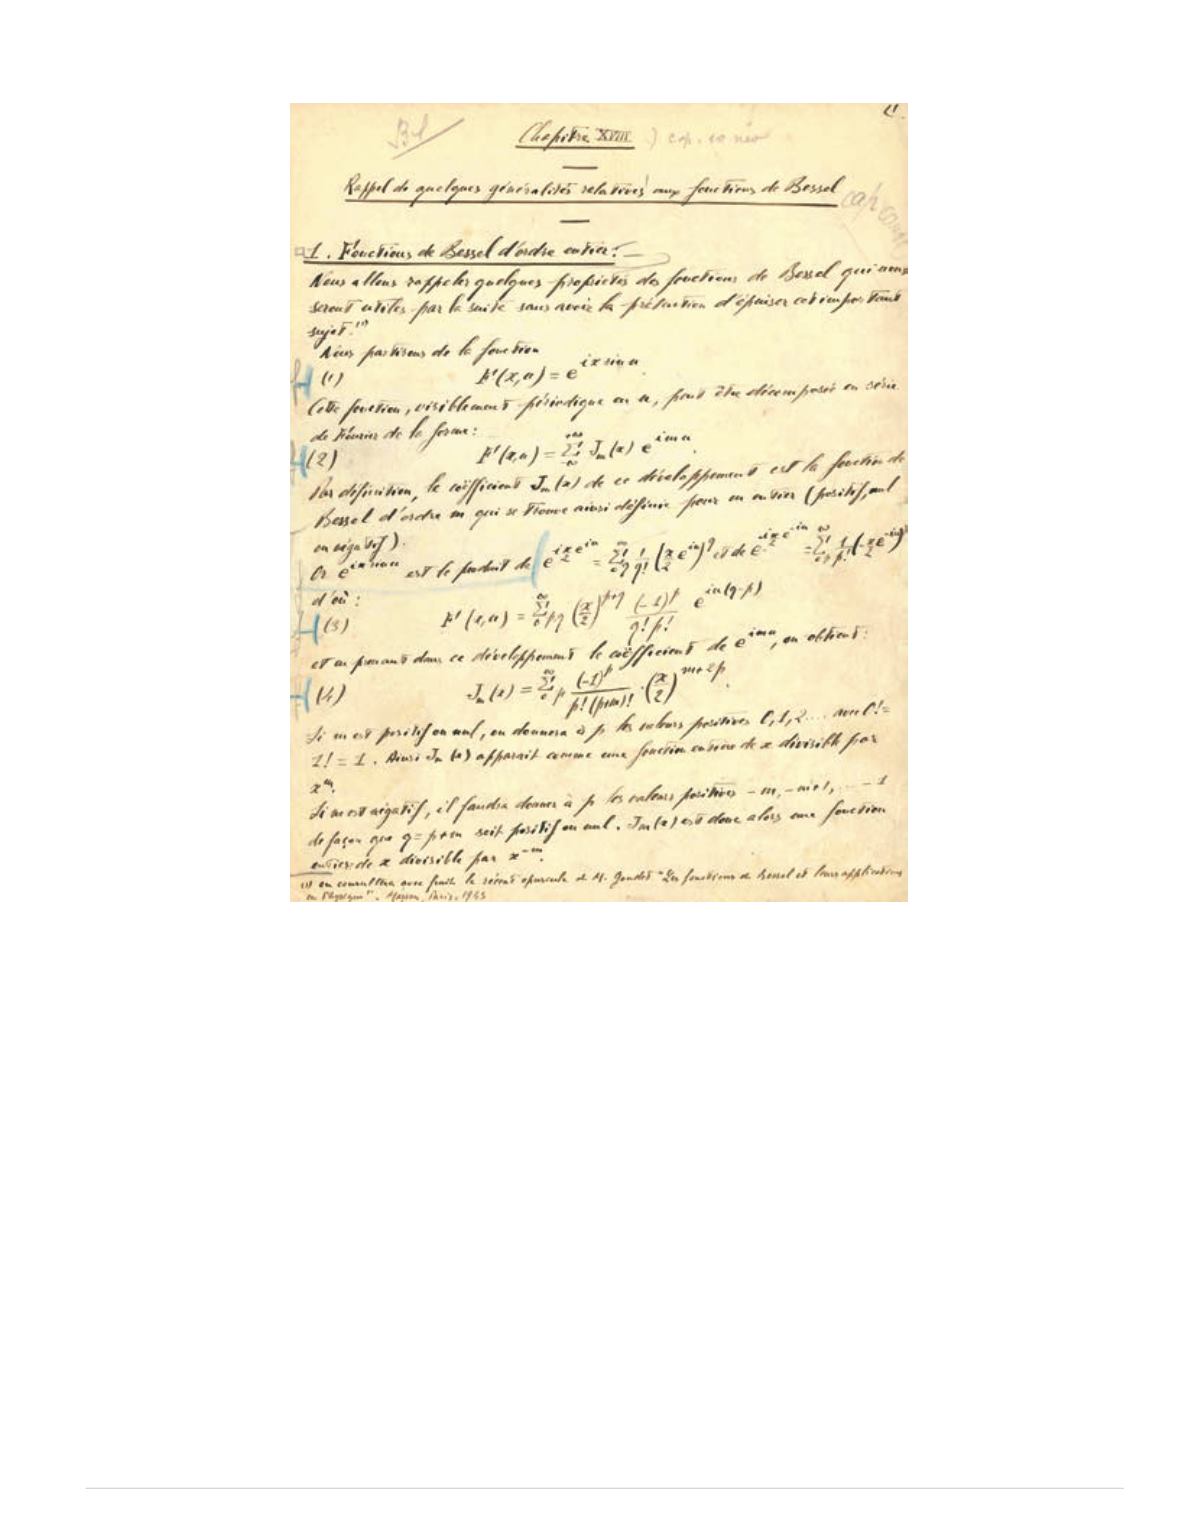 Chapitre XVIII
Rappel de quelques généralités relatives aux fonctions de Bessel
1. Fonctions de Bessel d'ordre entier. —
Nous allons rappeler quelques propriétés des fonctions de Bessel qui nous
seront utiles par la suite sans avoir la prétention d'épuiser cet important
sujet.(1)
Nous partirons de la fonction
(1) F(x,u) = e^{ix sin u}.
Cette fonction, visiblement périodique en u, peut être décomposée en série
de Fourier de la forme:
(2) F(x,u) = Σ_{-∞}^{+∞} J_m(x) e^{imu}.
Par définition, le coëfficient J_m(x) de ce développement est la fonction de
Bessel d'ordre m qui se trouve ainsi définie pour m entier (positif, nul
ou négatif).
Or e^{ix sin u} est le produit de e^{x/2 e^{iu}} = Σ_0^∞ q 1/q! (x/2 e^{iu})^q et de e^{-x/2 e^{-iu}} = Σ_0^∞ p 1/p! (-x/2 e^{-iu})^p
d'où:
(3) F(x,u) = Σ_0^∞ pq (x/2)^{p+q} (-1)^p/q!p! e^{iu(q-p)}
et en prenant dans ce développement le coëfficient de e^{imu}, on obtient:
(4) J_m(x) = Σ_0^∞ p (-1)^p/p!(p+m)! · (x/2)^{m+2p}.
Si m est positif ou nul, on donnera à p les valeurs positives 0,1,2.... avec 0! =
1! = 1. Ainsi J_m(x) apparait comme une fonction entière de x divisible par
x^m.
Si m est négatif, il faudra donner à p les valeurs positives -m, -m+1, ... -1
de façon que q = p+m soit positif ou nul. J_m(x) est donc alors une fonction
entière de x divisible par x^{-m}.
(1) on consultera avec fruit le récent opuscule de M. Goudet "Les fonctions de Bessel et leurs applications
en Physique". Masson, Paris, 1943